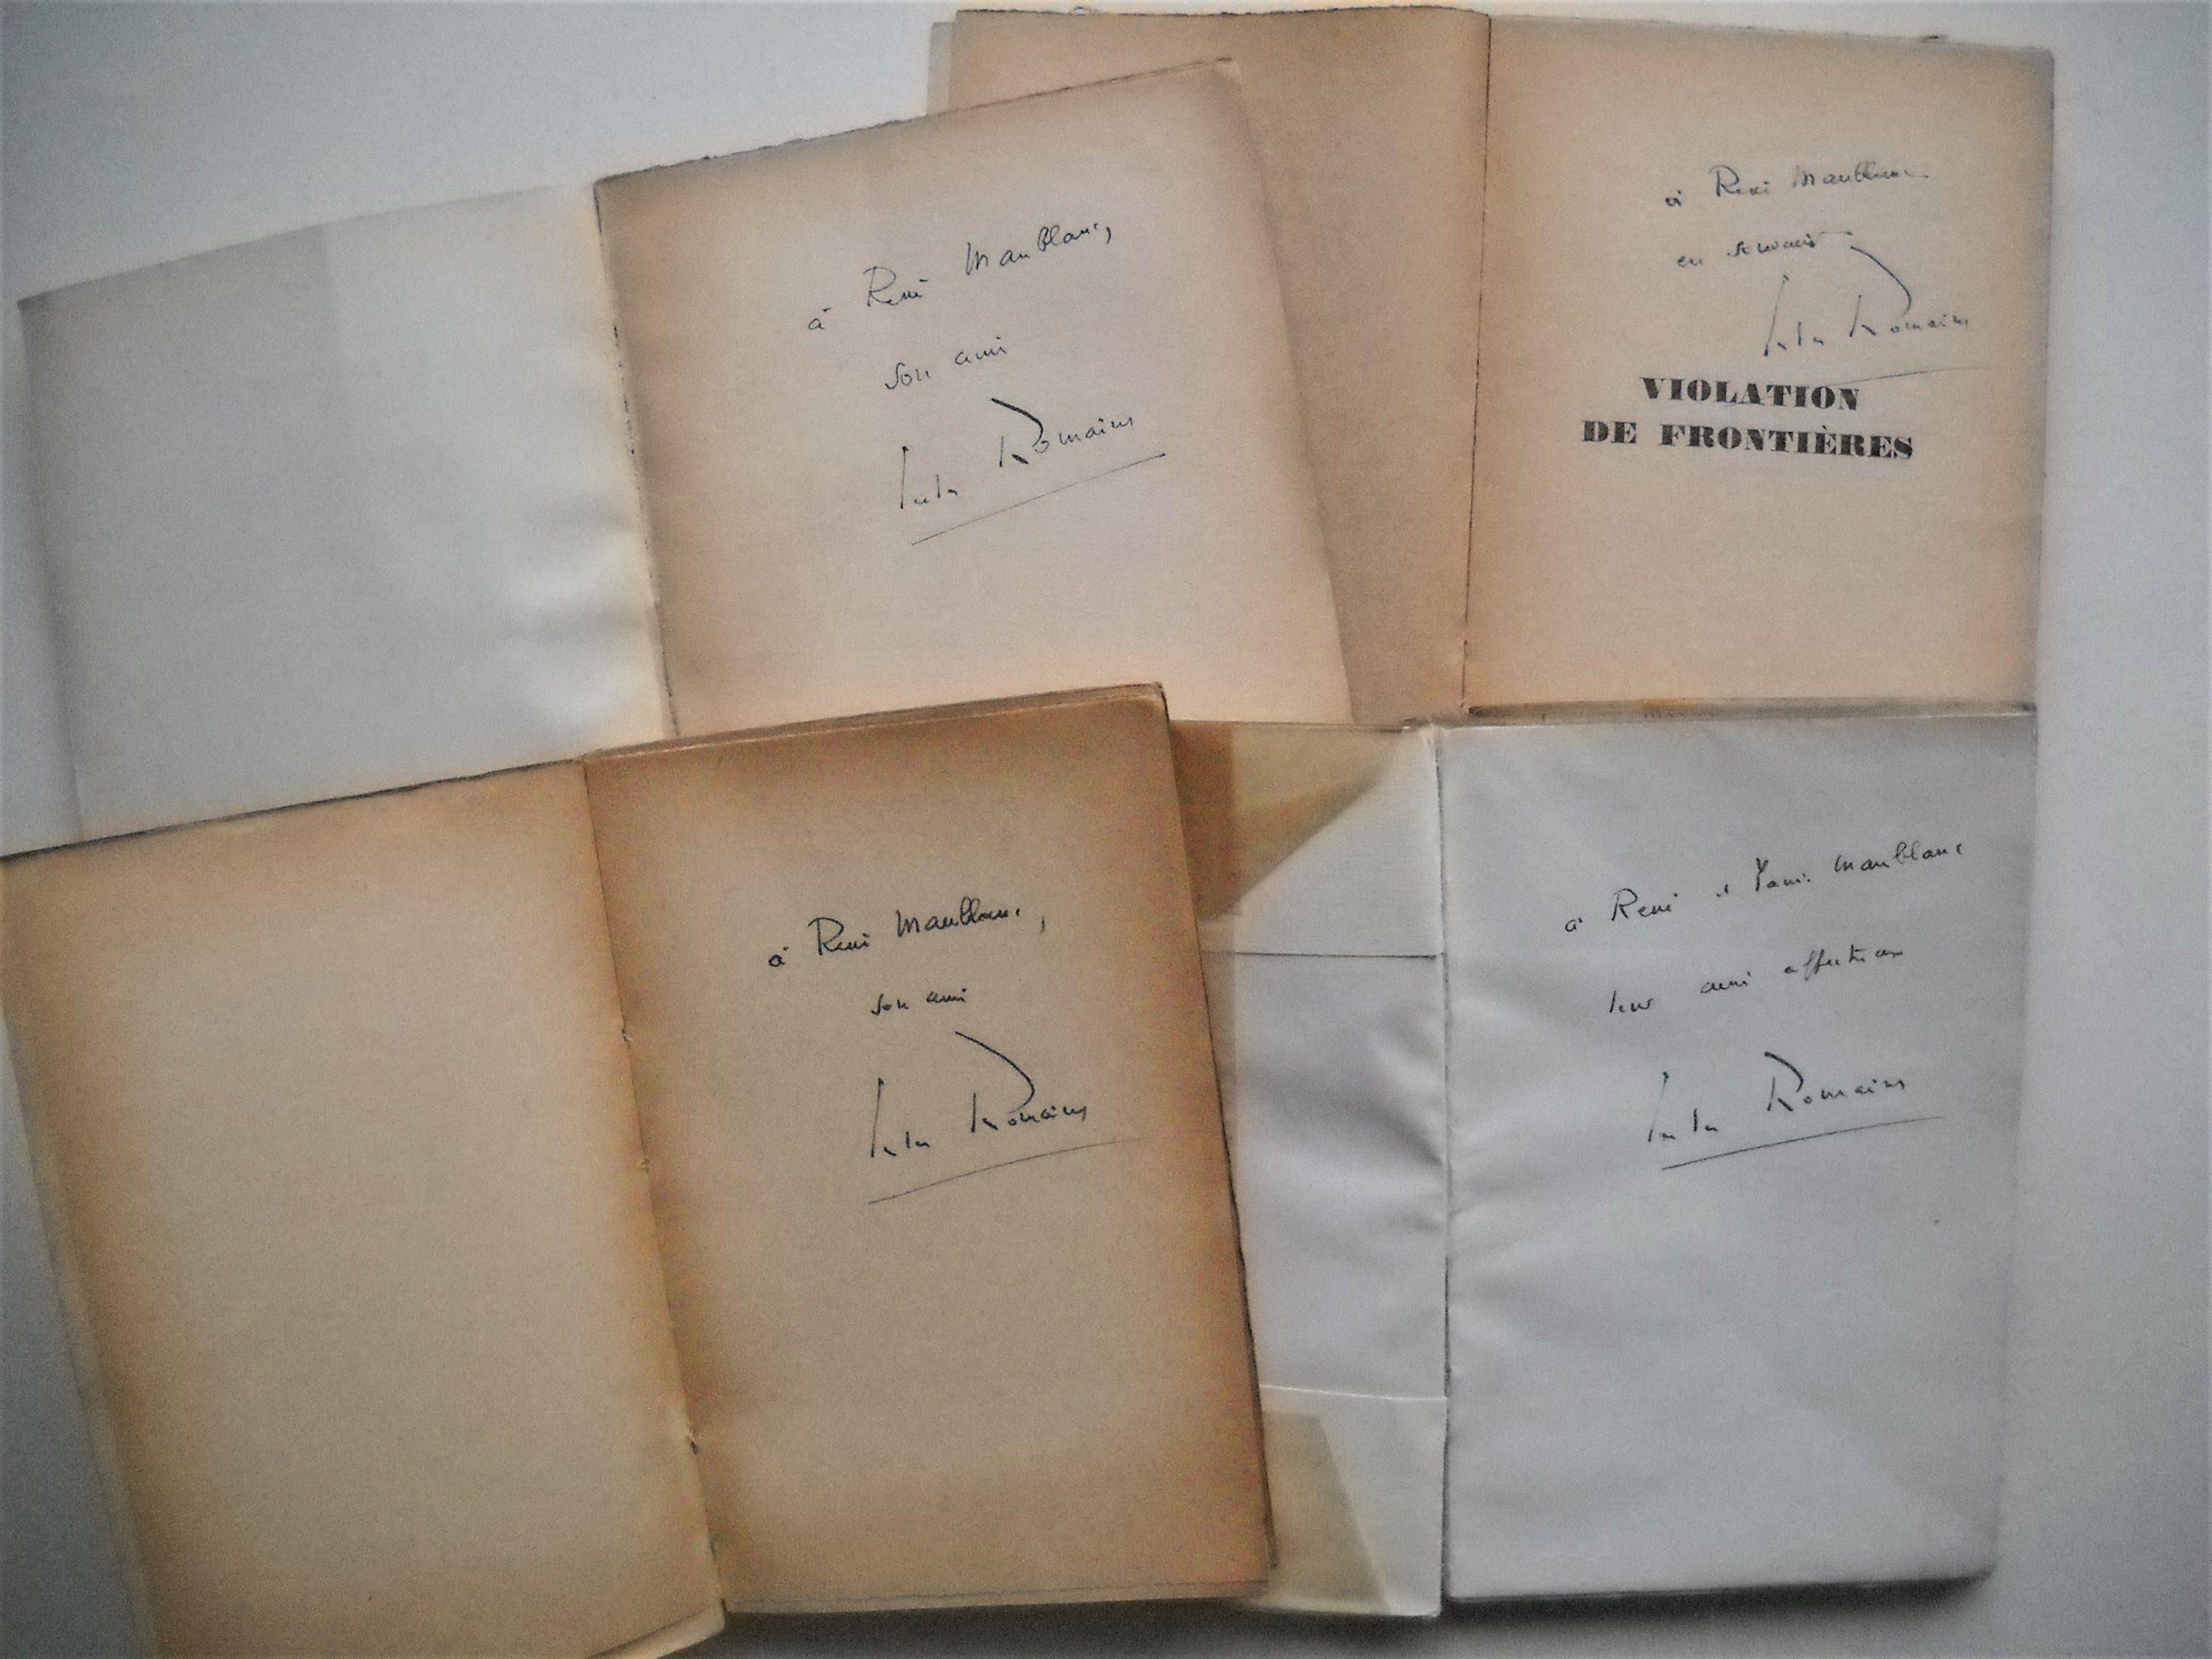 à René Maublanc,
son ami
Jules Romains
à René Maublanc
en souvenir
Jules Romains
VIOLATION
DE FRONTIÈRES
à René Maublanc,
son ami
Jules Romains
à René et Maublanc
leur ami affectueux
Jules Romains